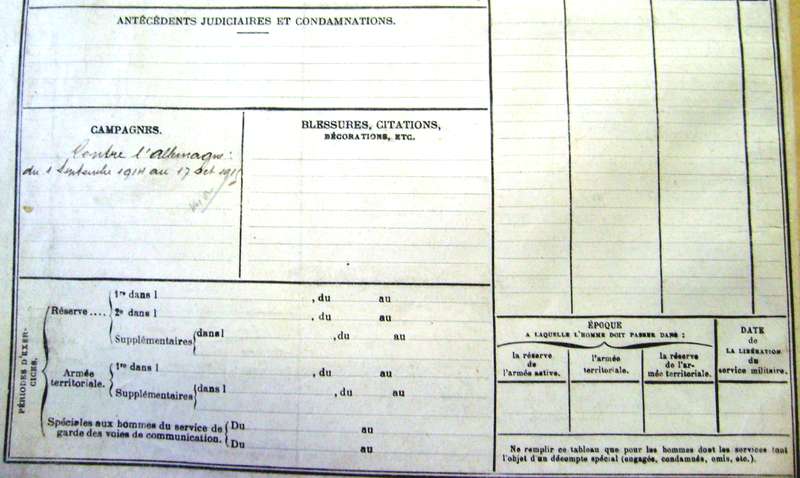 ANTÉCÉDENTS JUDICIAIRES ET CONDAMNATIONS.
CAMPAGNES.
Contre l'Allemagne:
du 1 Septembre 1914 au 17 Oct
BLESSURES, CITATIONS,
DÉCORATIONS, ETC.
PÉRIODES D'EXER-
CICES.
Réserve ....
1re dans l , du au
2e dans l , du au
Supplémentaires dans l , du au
Armée
territoriale.
1re dans l , du au
Supplémentaires dans l , du au
Spéciales aux hommes du service de
garde des voies de communication.
Du au
Du au
ÉPOQUE
A LAQUELLE L'HOMME DOIT PASSER DANS :
la réserve
de
l'armée active.
l'armée
territoriale.
la réserve
de l'ar-
mée territoriale.
DATE
de
LA LIBÉRATION
du
service militaire.
Ne remplir ce tableau que pour les hommes dont les services font
l'objet d'un décompte spécial (engagés, condamnés, omis, etc.).